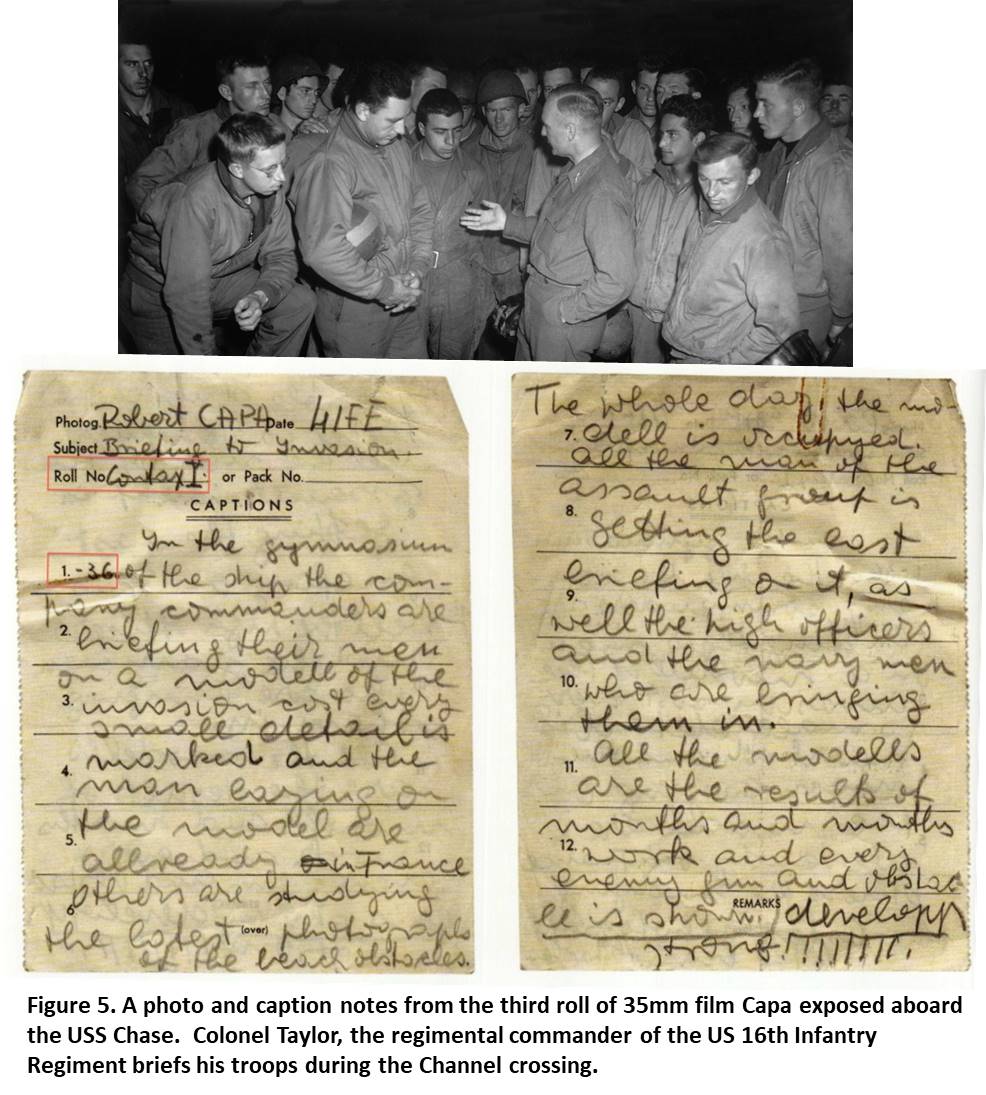 Photog. Robert CAPA Date LIFE
Subject Briefing to Invasion.
Roll No Contax I. or Pack No.
CAPTIONS
In the gymnasium
1.-36 of the ship the com-
pany commanders are
2. briefing their men
on a modell of the
3. invasion cost every
small detail is
marked and the
4. man lazing on
the model are
5. allready in France
6 others are studying
the latest (over) photographs
of the beach obstacles.
The whole day the mo-
7. dell is occupyed.
all the man of the
assault group is
8. getting the last
briefing on it, as
9. well the high officers
and the navy men
10. who are bringing
them in.
All the modells
11. are the results of
months and months
12. work and every
enemy gun and obstac
le is shown. REMARKS / developp
strong!!!!!!!!.
Figure 5. A photo and caption notes from the third roll of 35mm film Capa exposed aboard
the USS Chase. Colonel Taylor, the regimental commander of the US 16th Infantry
Regiment briefs his troops during the Channel crossing.